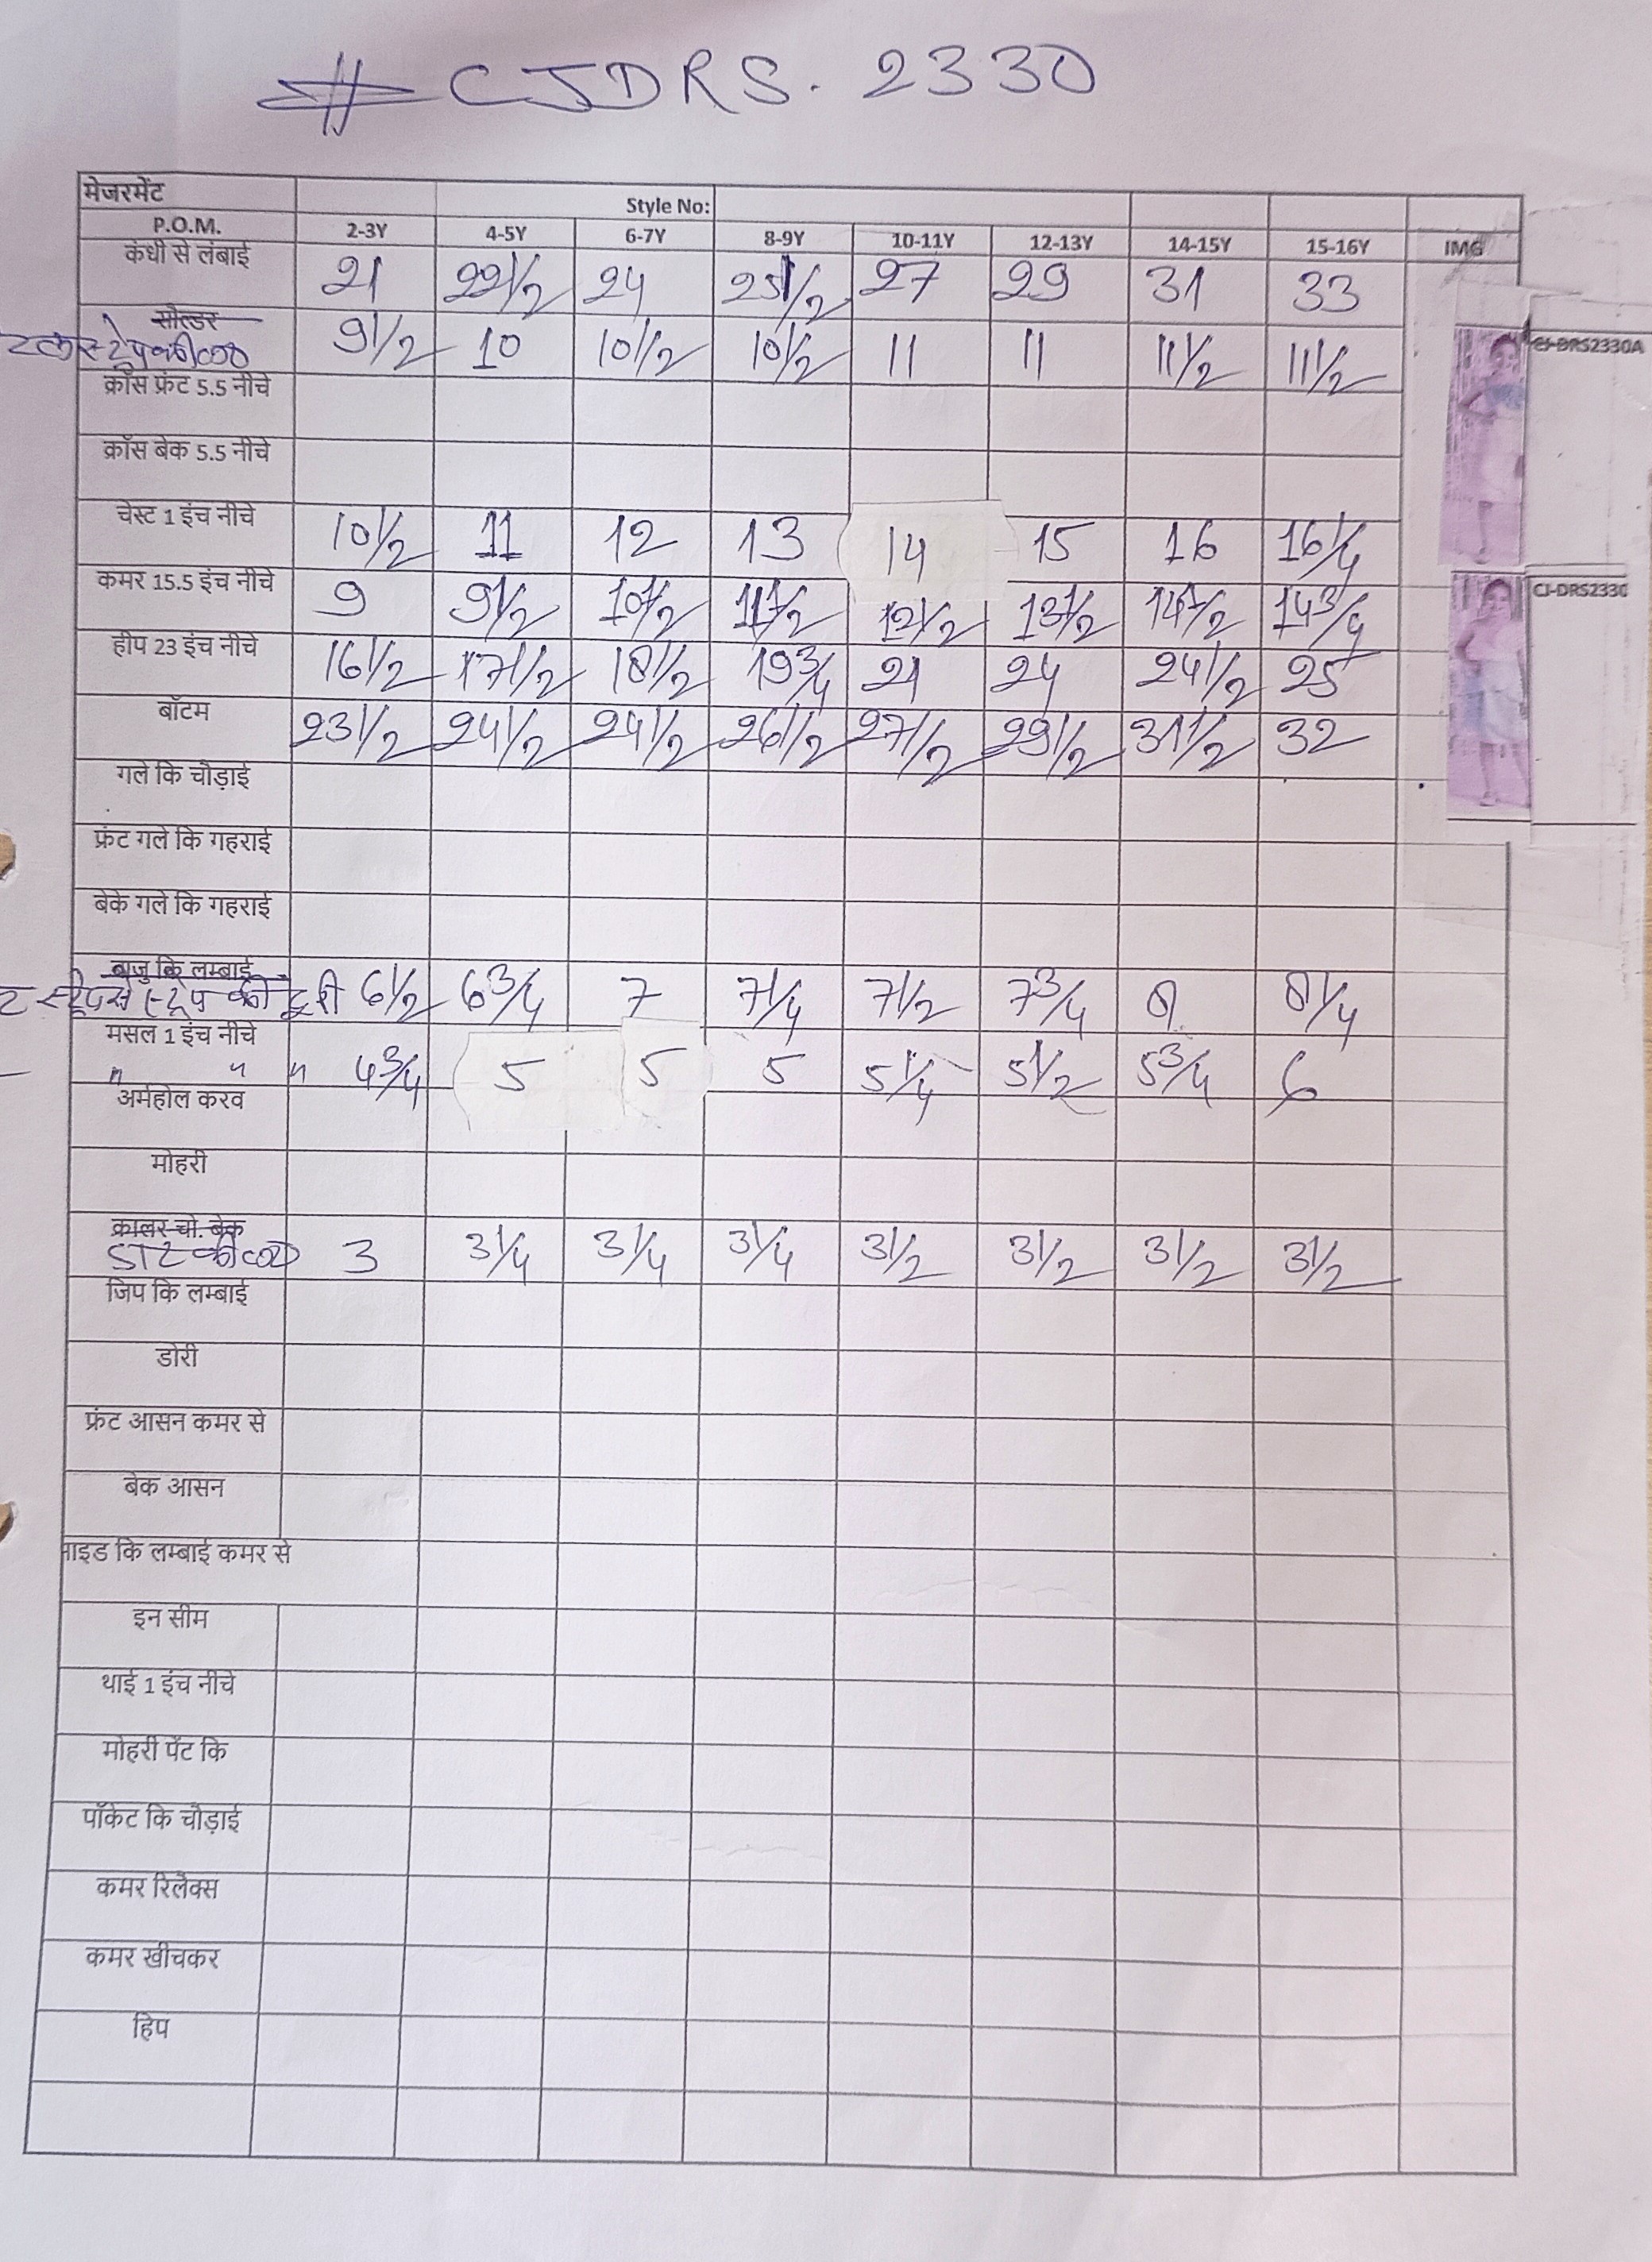 # CJDRS. 2330
मेजरमेंट Style No:
P.O.M. 2-3Y 4-5Y 6-7Y 8-9Y 10-11Y 12-13Y 14-15Y 15-16Y IMG
कंधी से लंबाई 21 22 1/2 24 25 1/2 27 29 31 33
सोल्डर
9 1/2 10 10 1/2 10 1/2 11 11 11 1/2 11 1/2
CJ-DRS2330A
क्रॉस फ्रंट 5.5 नीचे
क्रॉस बेक 5.5 नीचे
चेस्ट 1 इंच नीचे 10 1/2 11 12 13 14 15 16 16 1/4
कमर 15.5 इंच नीचे 9 9 1/2 10 1/2 11 1/2 12 1/2 13 1/2 14 1/2 14 3/4
CJ-DRS2330
हीप 23 इंच नीचे 16 1/2 17 1/2 18 1/2 19 3/4 21 24 24 1/2 25
बॉटम 23 1/2 24 1/2 24 1/2 26 1/2 27 1/2 29 1/2 31 1/2 32
गले कि चौड़ाई
फ्रंट गले कि गहराई
बेके गले कि गहराई
बाजु कि लम्बाई
स्ट्रेप से स्ट्रेप की दूरी 6 1/2 6 3/4 7 7 1/4 7 1/2 7 3/4 8 8 1/4
मसल 1 इंच नीचे
" " " 4 3/4 5 5 5 5 1/4 5 1/2 5 3/4 6
अर्महोल करव
मोहरी
क्रालर चो. बेक
3 3 1/4 3 1/4 3 1/4 3 1/2 3 1/2 3 1/2 3 1/2
जिप कि लम्बाई
डोरी
फ्रंट आसन कमर से
बेक आसन
साइड कि लम्बाई कमर से
इन सीम
थाई 1 इंच नीचे
मोहरी पेंट कि
पॉकेट कि चौड़ाई
कमर रिलेक्स
कमर खीचकर
हिप